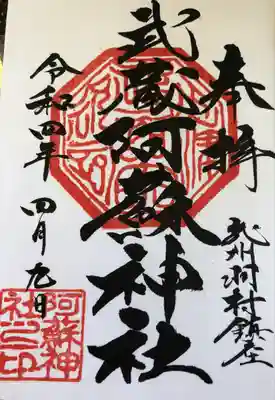 奉拝
武州羽村鎮座
武蔵阿蘇神社
令和四年 四月九日
阿蘇神
社之印